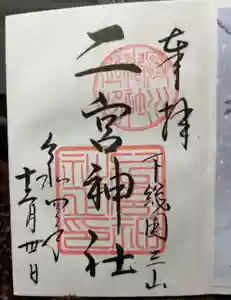 奉拝
下総国三山
二宮神社
令和四年
十二月廿日